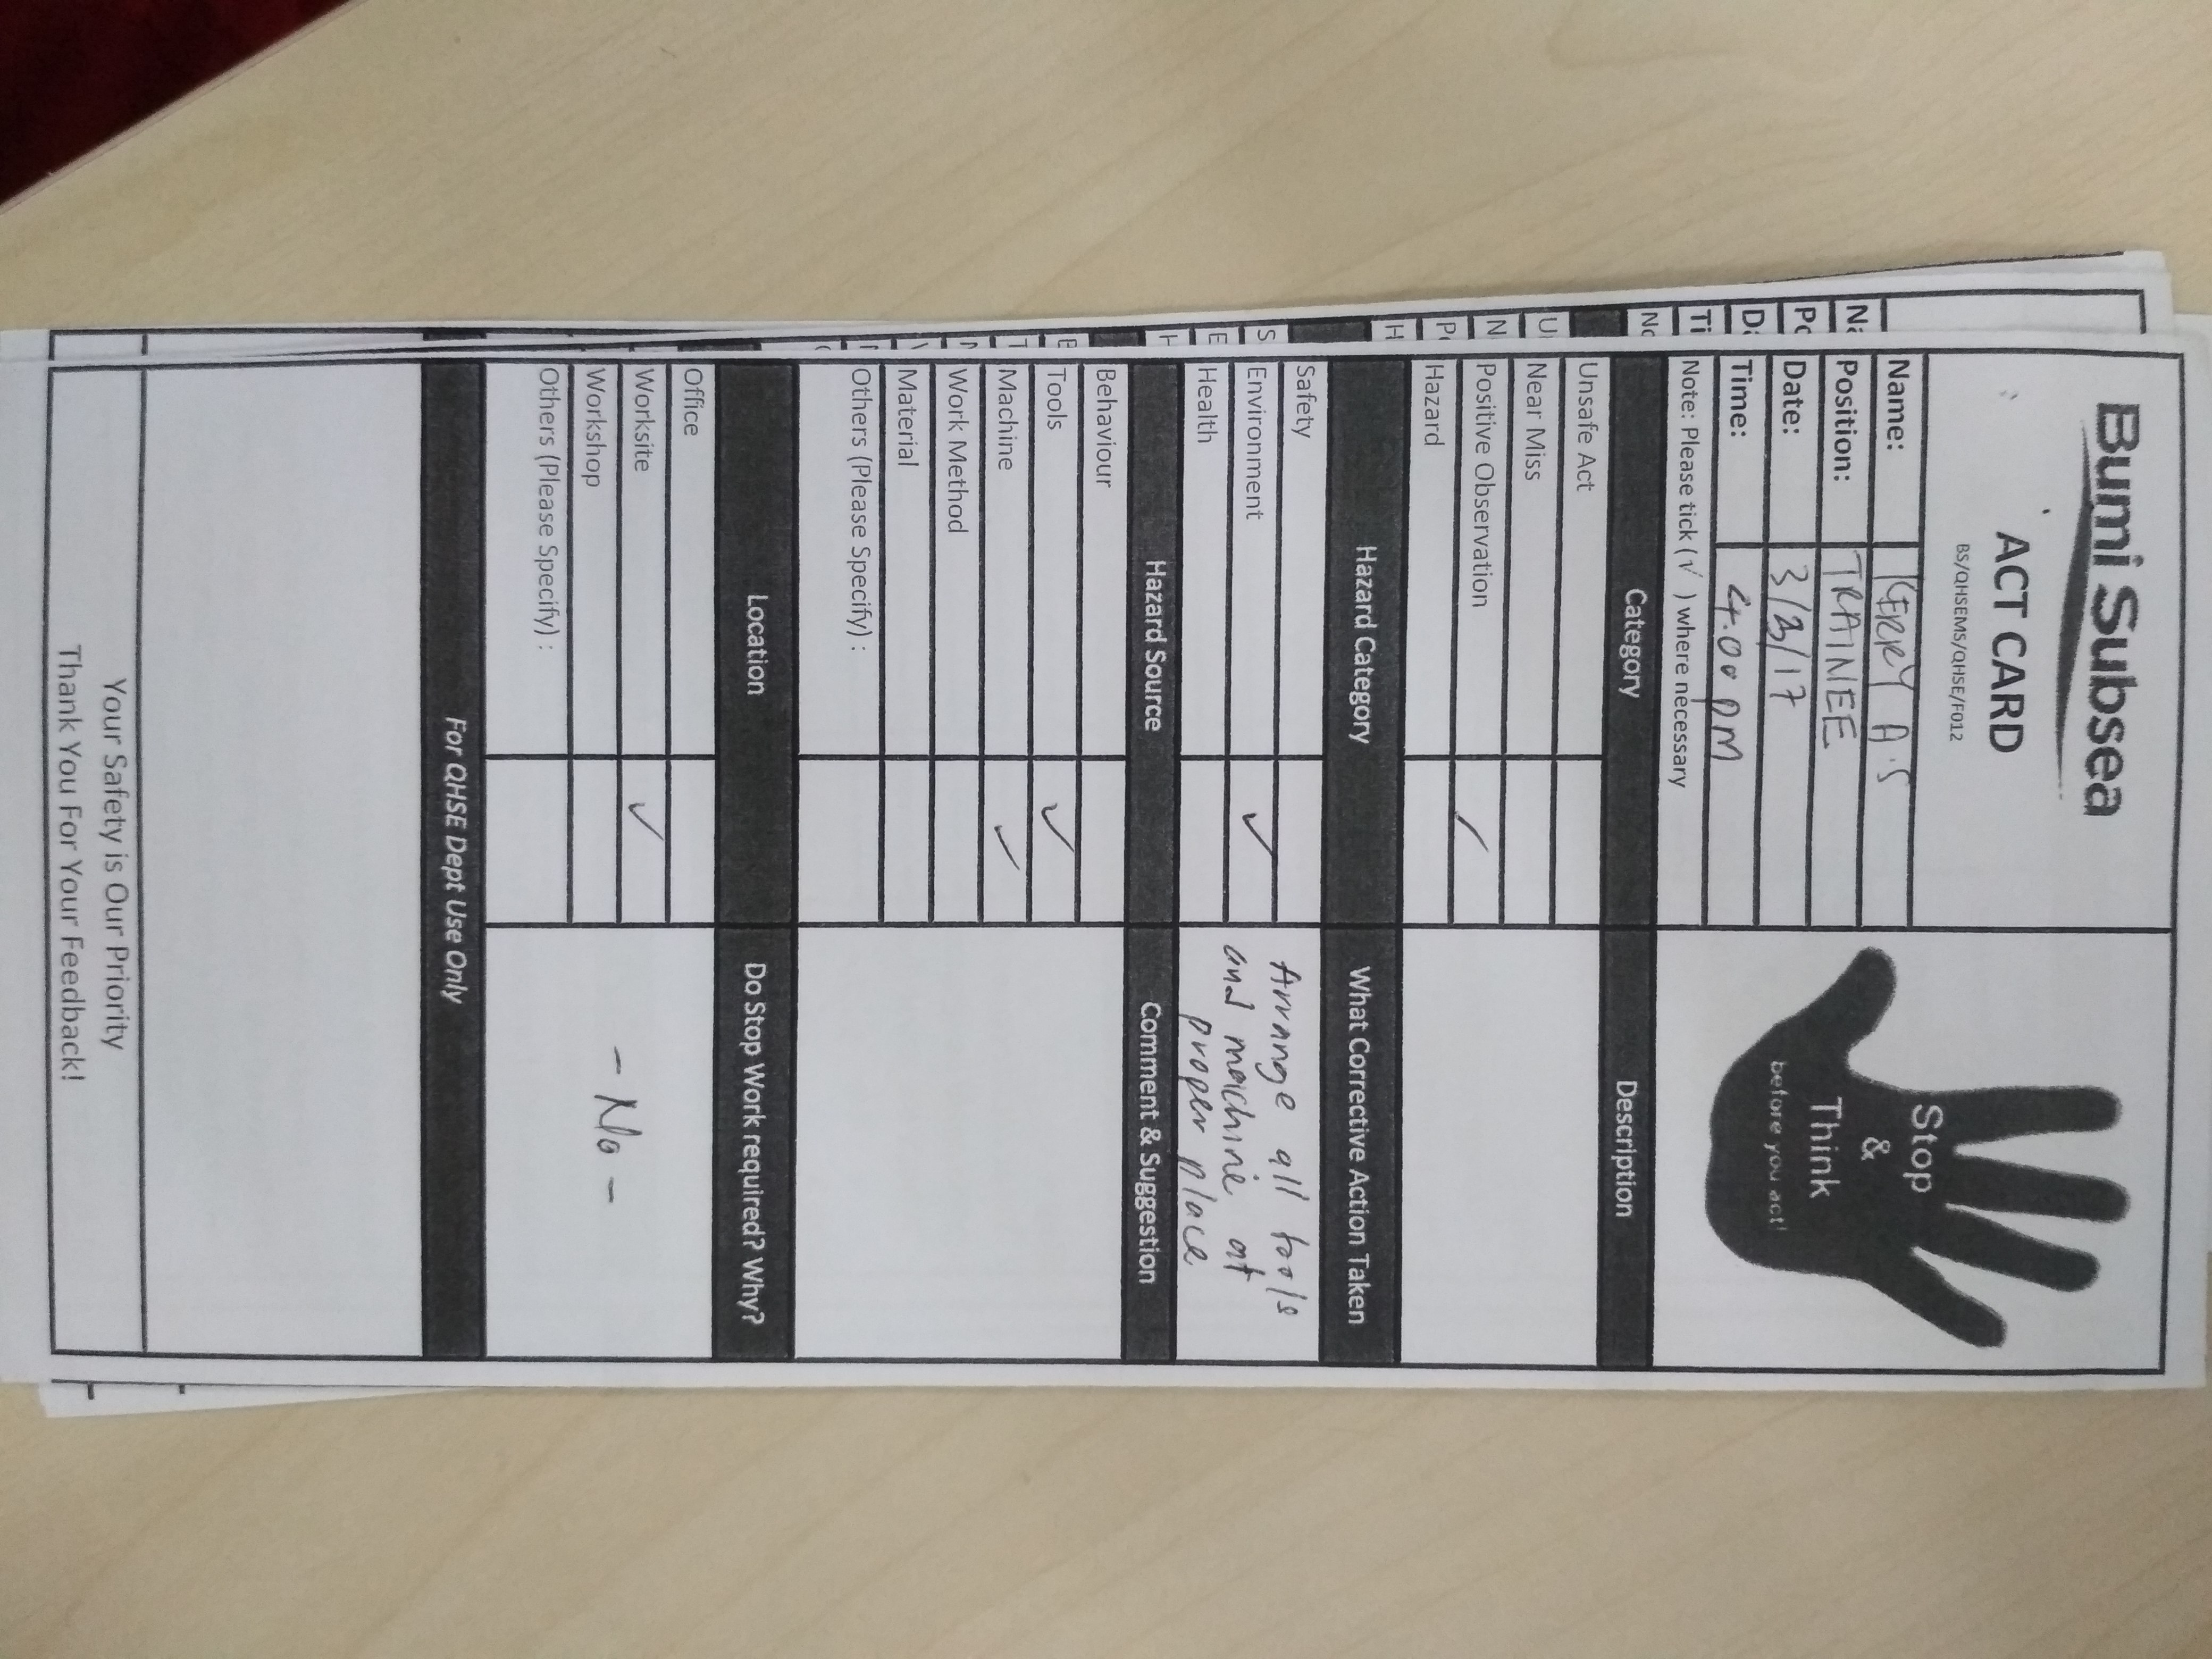 Bumi Subsea
ACT CARD
BS/QHSEMS/QHSE/F012
Stop
&
Think
before you act!
Name: KERRY A.S
Position: TRAINEE
Date: 3/3/17
Time: 4.00 PM
Note: Please tick (√ ) where necessary
Category Description
Unsafe Act
Near Miss
Positive Observation ✓
Hazard
Hazard Category What Corrective Action Taken
Safety
Environment ✓
Health
Arrange all tools
and machine at
proper place
Hazard Source Comment & Suggestion
Behaviour
Tools ✓
Machine ✓
Work Method
Material
Others (Please Specify) :
Location Do Stop Work required? Why?
Office
Worksite ✓
Workshop
Others (Please Specify) :
- No -
For QHSE Dept Use Only
Your Safety is Our Priority
Thank You For Your Feedback!